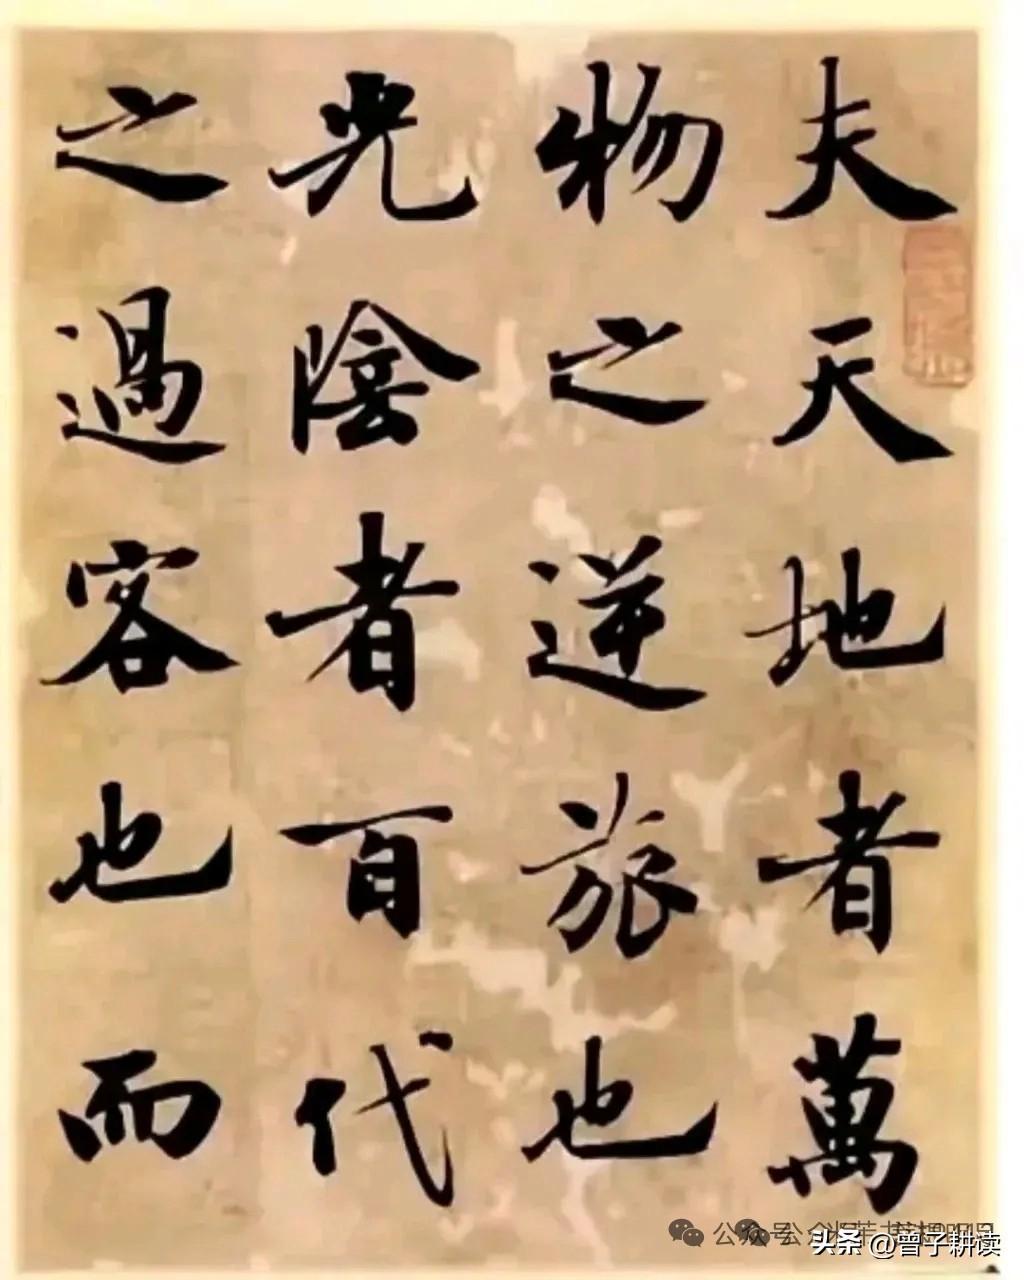 夫天地者萬
物之逆旅也
光陰者百代
之過客也而
头条 @曾子耕读